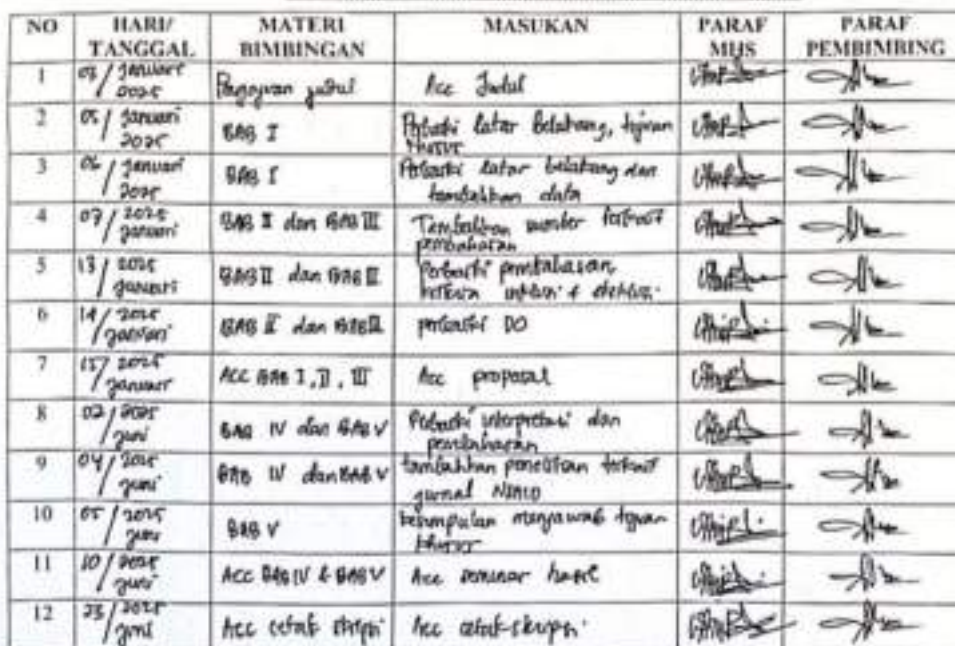 NO HARI/ TANGGAL MATERI BIMBINGAN MASUKAN PARAF MHS PARAF PEMBIMBING
1 03/ Januari 2025 Pengajuan judul Acc Judul
2 05/ Januari 2025 BAB I Perbaiki latar Belakang, tujuan khusus
3 06/ Januari 2025 BAB I Perbaiki latar belakang dan tambahkan data
4 07/ 2025 Januari BAB II dan BAB III Tambahkan sumber pembahasan
5 13/ 2025 Januari BAB II dan BAB III Perbaiki pembahasan kriteria inklusi & eksklusi
6 14/ 2025 Januari BAB II dan BAB III perbaiki DO
7 15/ 2025 Januari ACC BAB I, II, III Acc proposal
8 02/ 2025 Juni BAB IV dan BAB V Perbaiki interpretasi dan pembahasan
9 04/ 2025 Juni BAB IV dan BAB V tambahkan penelitian jurnal
10 05/ 2025 Juni BAB V kesimpulan menjawab tujuan khusus
11 10/ 2025 Juni Acc BAB IV & BAB V Acc seminar hasil
12 23/ 2025 Juni Acc cetak skripsi Acc cetak skripsi